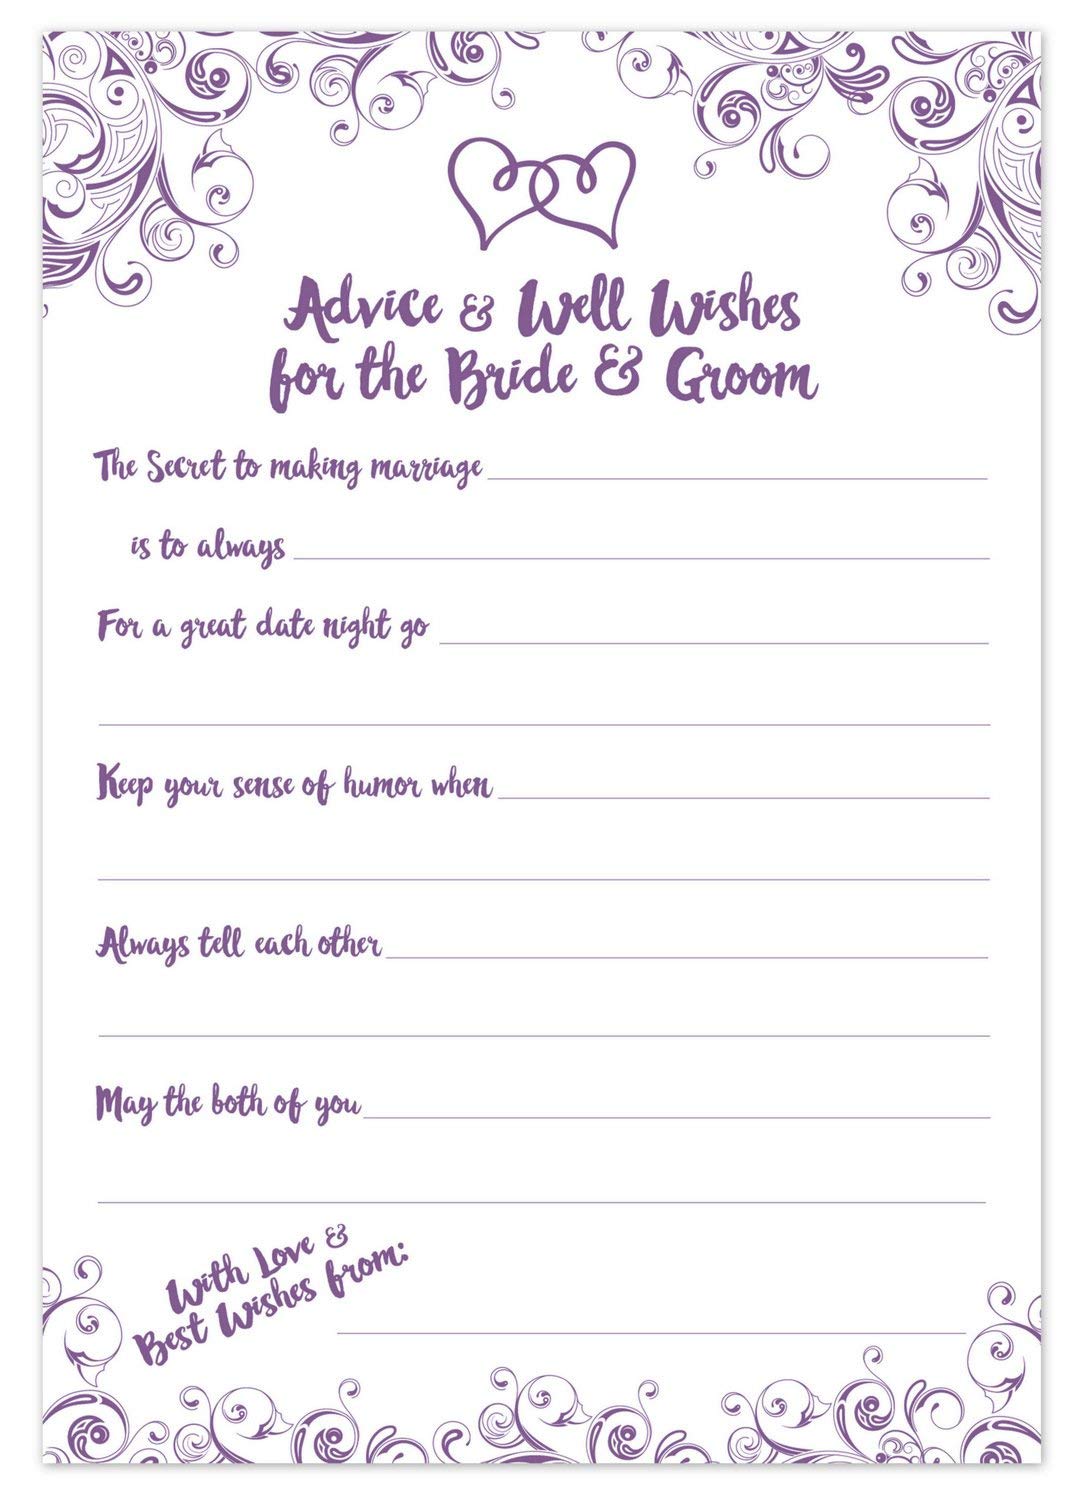 Advice & Well Wishes
for the Bride & Groom
The Secret to making marriage
is to always
For a great date night go
Keep your sense of humor when
Always tell each other
May the both of you
With Love &
Best Wishes from: